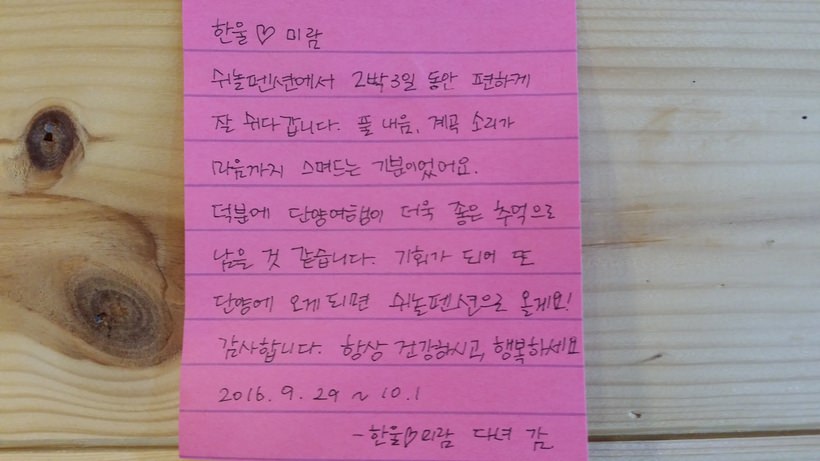 한울♡미람
쉬놀펜션에서 2박3일 동안 편하게
잘 쉬다갑니다. 풀 내음, 계곡 소리가
마음까지 스며드는 기분이었어요.
덕분에 단양여행이 더욱 좋은 추억으로
남을 것 같습니다. 기회가 되어 또
단양에 오게되면 쉬놀펜션으로 올게요!
감사합니다. 항상 건강하시고, 행복하세요
2016. 9. 29 ~ 10. 1
-한울♡미람 다녀 감